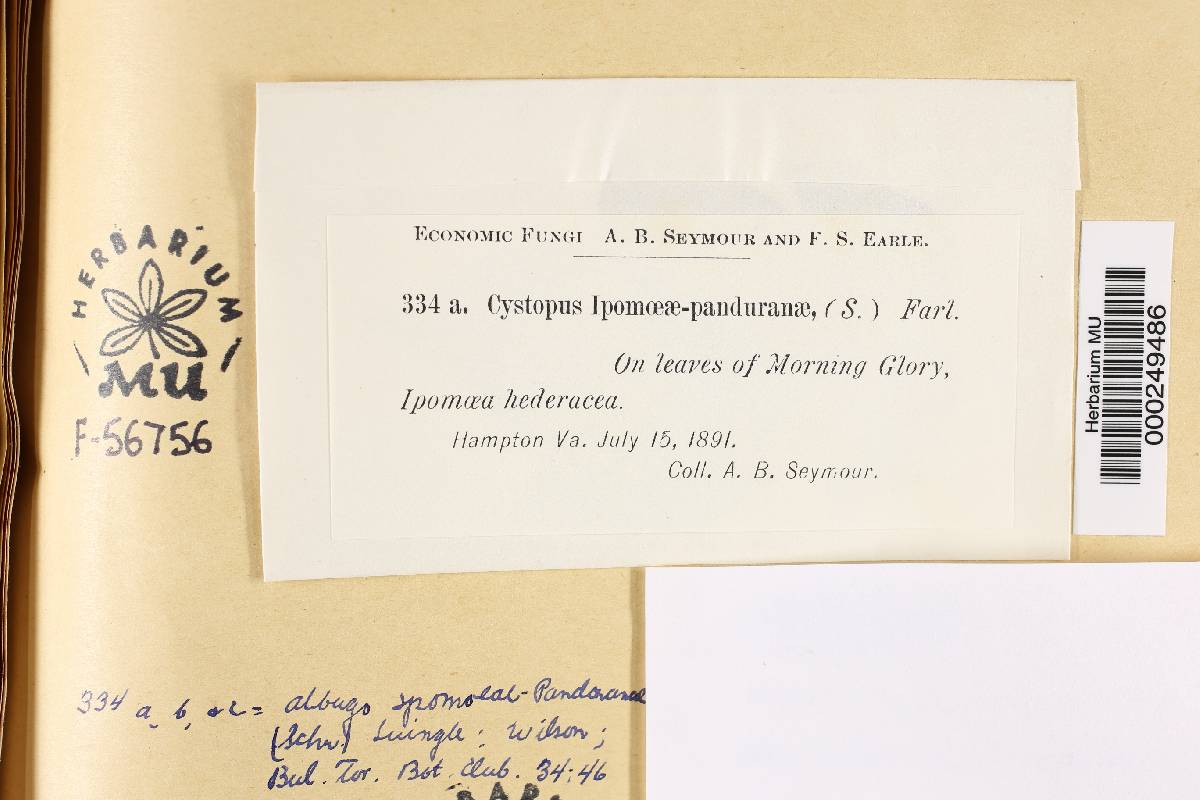 ECONOMIC FUNGI A. B. SEYMOUR AND F. S. EARLE.
334 a. Cystopus Ipomœæ-panduranæ, (S.) Farl.
On leaves of Morning Glory,
Ipomœa hederacea.
Hampton Va. July 15, 1891.
Coll. A. B. Seymour.
HERBARIUM
MU
F-56756
Herbarium MU
000249486
334 a, b, + c = albugo Ipomoeae-Panduranae
(Schw) Swingle; Wilson;
Bul. Tor. Bot. Club. 34:46